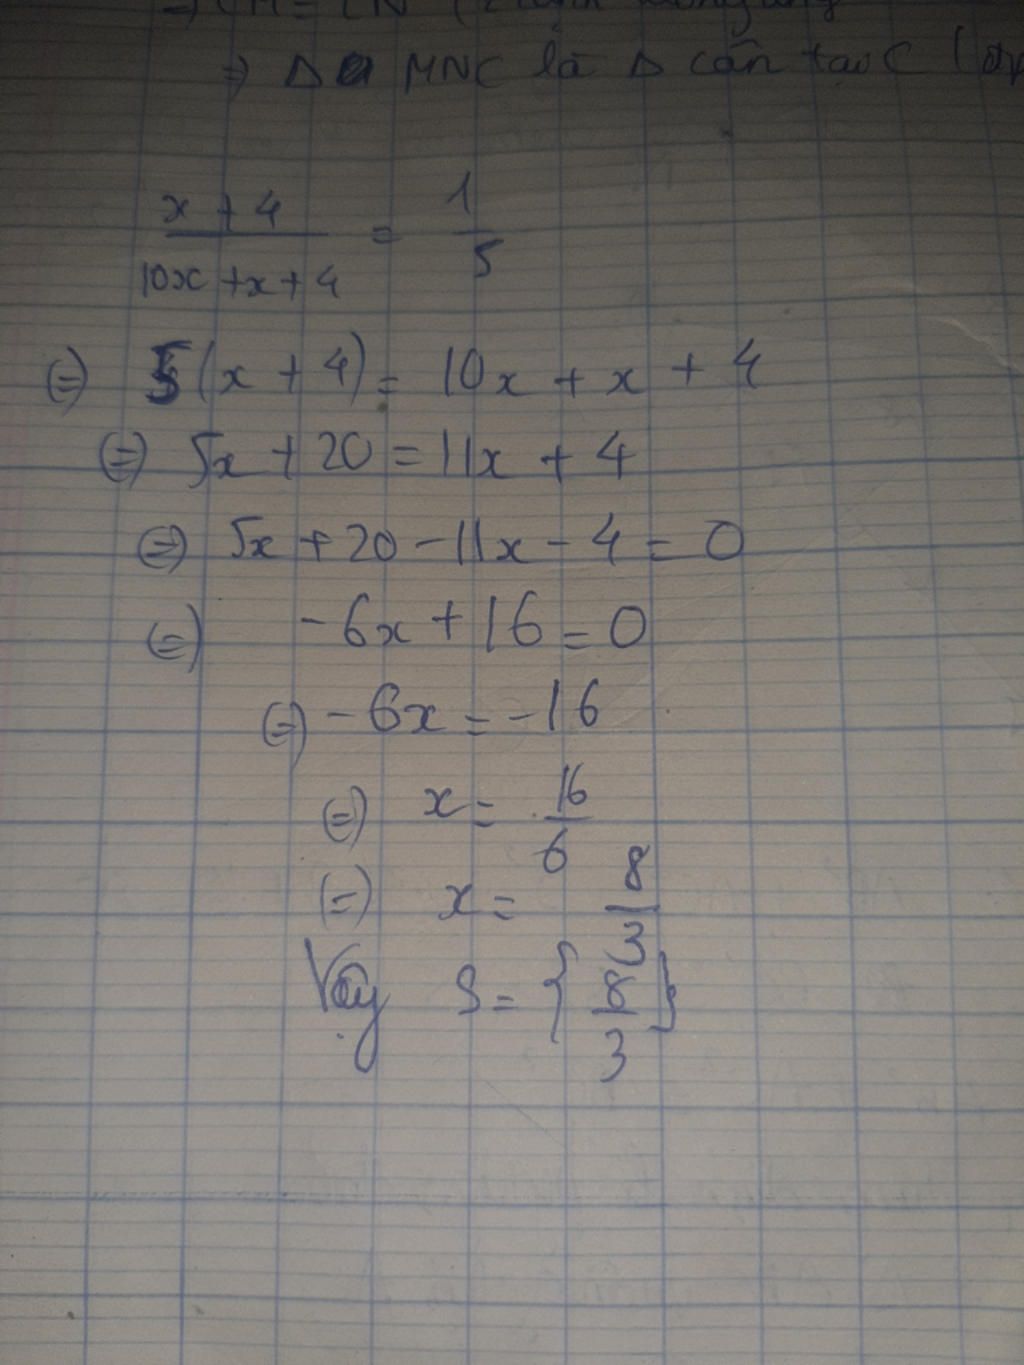 => ΔMNC là Δ cân tại C
x + 4 / 10x + x + 4 = 1 / 5
(=) 5(x + 4) = 10x + x + 4
(=) 5x + 20 = 11x + 4
(=) 5x + 20 - 11x - 4 = 0
(=) - 6x + 16 = 0
(=) - 6x = - 16
(=) x = 16 / 6
(=) x = 8 / 3
Vậy S = { 8 / 3 }